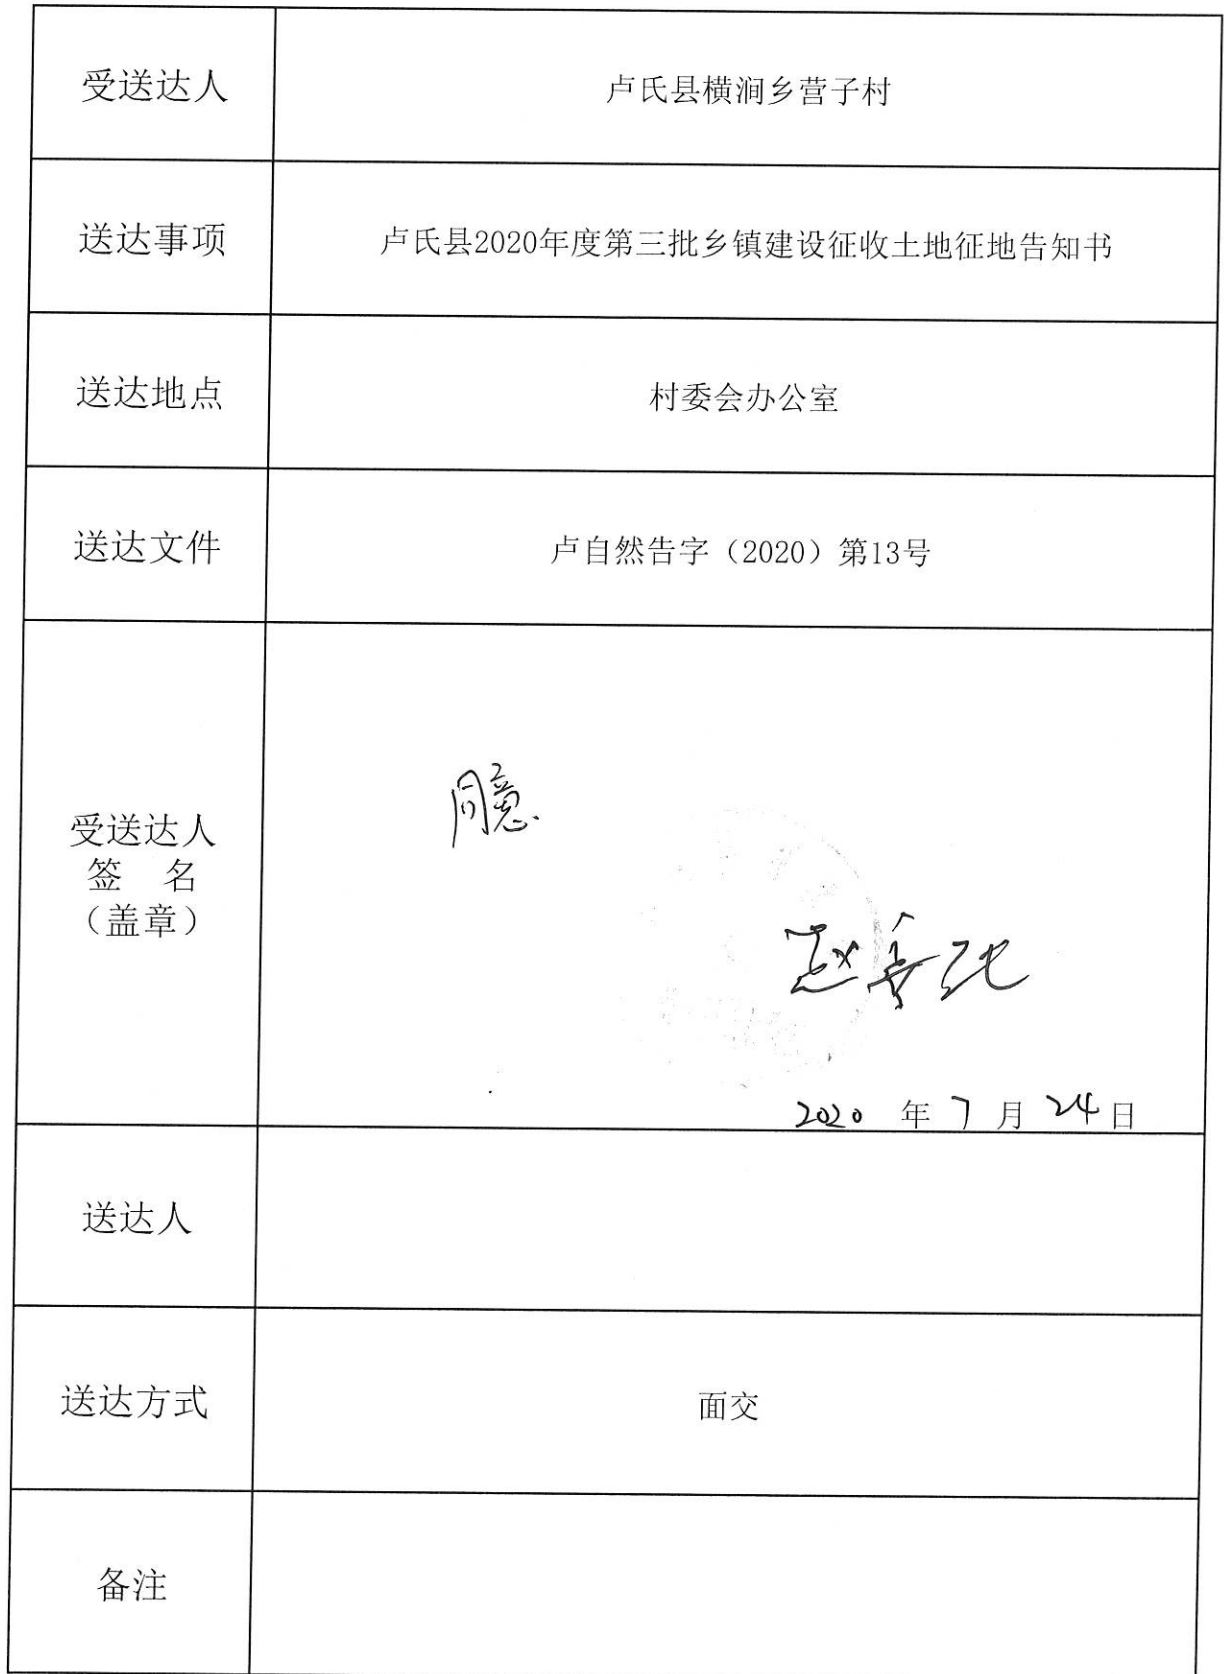 受送达人
卢氏县横涧乡营子村
送达事项
卢氏县2020年度第三批乡镇建设征收土地征地告知书
送达地点
村委会办公室
送达文件
卢自然告字（2020）第13号
受送达人
签 名
（盖章）
同意.
2020 年 7 月 24 日
送达人
送达方式
面交
备注